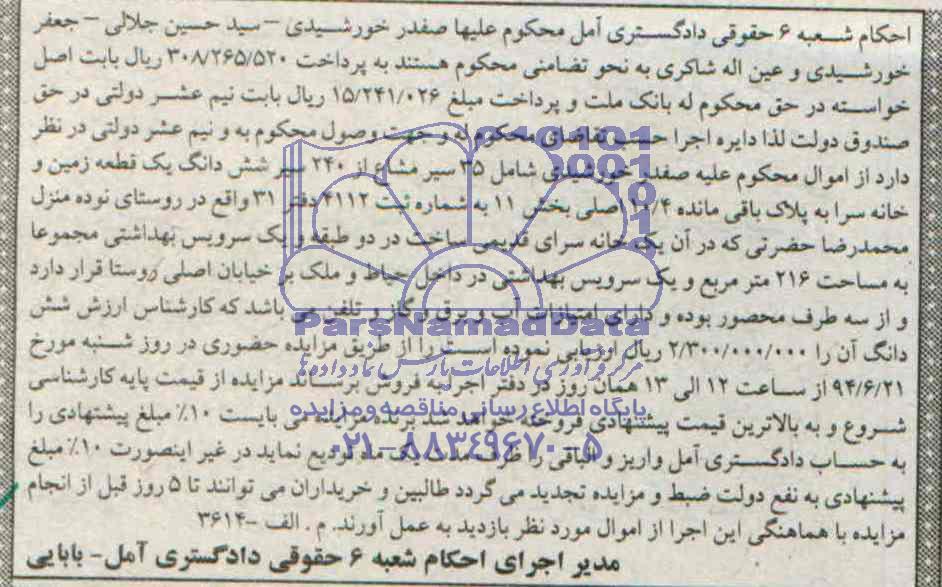 احکام شعبه ۶ حقوقی دادگستری آمل محکوم علیها صفدر خورشیدی – سید حسین جلالی – جعفر
خورشیدی و عین اله شاکری به نحو تضامنی محکوم هستند به پرداخت ۳۰۸/۲۶۵/۵۲۰ ریال بابت اصل
خواسته در حق محکوم له بانک ملت و پرداخت مبلغ ۱۵/۲۴۱/۰۲۶ ریال بابت نیم عشر دولتی در حق
صندوق دولت لذا دایره اجرا حسب تقاضای محکوم له و جهت وصول محکوم به و نیم عشر دولتی در نظر
دارد از اموال محکوم علیه صفدر خورشیدی شامل ۳۵ سیر مشاع از ۲۴۰ سیر شش دانگ یک قطعه زمین و
خانه سرا به پلاک باقی مانده اصلی بخش ۱۱ به شماره ثبت ۴۱۱۲ دفتر ۳۱ واقع در روستای نوده منزل
محمدرضا حضرتی که در آن یک خانه سرای قدیمی ساخت در دو طبقه و یک سرویس بهداشتی مجموعا
به مساحت ۲۱۶ متر مربع و یک سرویس بهداشتی در داخل حیاط و ملک بر خیابان اصلی روستا قرار دارد
و از سه طرف محصور بوده و دارای امتیازات آب و برق و گاز و تلفن می باشد که کارشناس ارزش شش
ParsNamadData
دانگ آن را ۲/۳۰۰/۰۰۰/۰۰۰ ریال ارزیابی نموده است را از طریق مزایده حضوری در روز شنبه مورخ
مرکز فرآوری اطلاعات پارس نماد داده ها
۹۴/۶/۲۱ از ساعت ۱۲ الی ۱۳ همان روز در دفتر اجرا به فروش برساند مزایده از قیمت پایه کارشناسی
پایگاه اطلاع رسانی مناقصه و مزایده
شروع و به بالاترین قیمت پیشنهادی فروخته خواهد شد برنده مزایده می بایست ۱۰٪ مبلغ پیشنهادی را
۰۲۱-۸۸۳۴۹۶۷۰-۵
به حساب دادگستری آمل واریز و الباقی را ظرف مدت یک ماه تودیع نماید در غیر اینصورت ۱۰٪ مبلغ
پیشنهادی به نفع دولت ضبط و مزایده تجدید می گردد طالبین و خریداران می توانند تا ۵ روز قبل از انجام
مزایده با هماهنگی این اجرا از اموال مورد نظر بازدید به عمل آورند. م . الف –۳۶۱۴
مدیر اجرای احکام شعبه ۶ حقوقی دادگستری آمل- بابایی